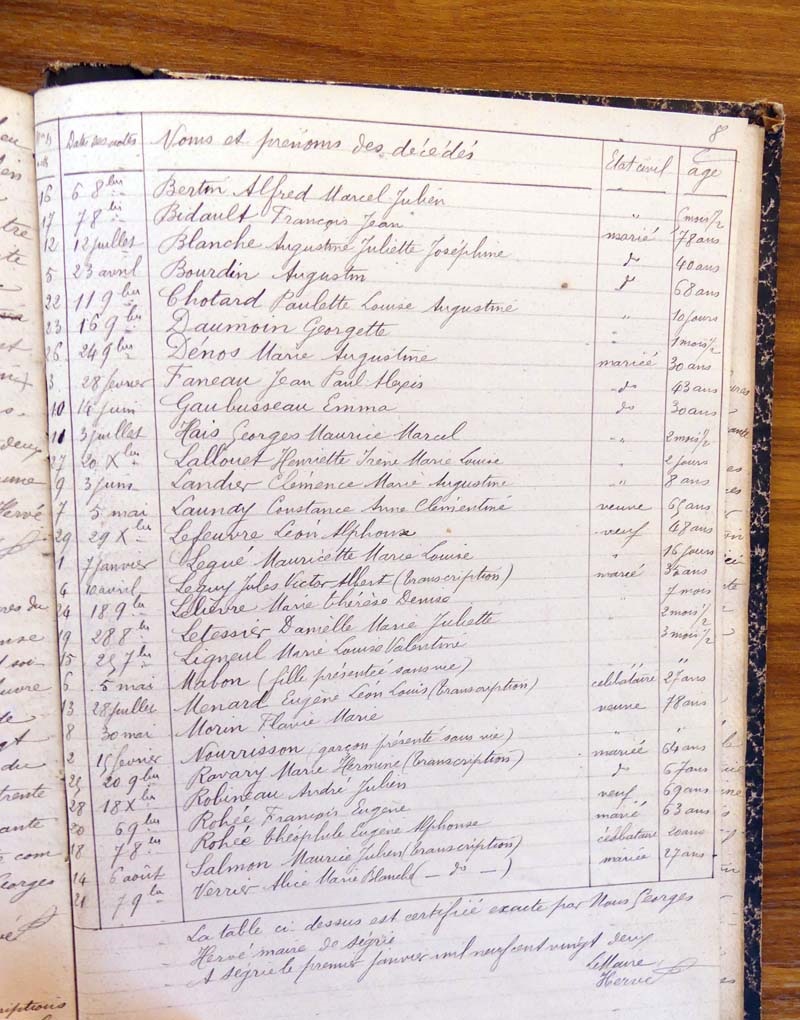 8
Dates des actes Noms et prénoms des décédés Etat civil âge
16 6 8bre Berton Alfred Marcel Julien " 6 mois ½
17 7 8bre Bidault François Jean marié 78 ans
12 12 juillet Blanche Augustine Juliette Joséphine do 40 ans
5 23 avril Bourdin Augustin do 68 ans
22 11 9bre Chotard Paulette Louise Augustine " 10 jours
23 16 9bre Daumoin Georgette " 1 mois ½
26 24 9bre Dénos Marie Augustine mariée 30 ans
3 28 février Faneau Jean Paul Alexis do 43 ans
10 14 juin Gaubusseau Emma do 30 ans
11 3 juillet Hais Georges Maurice Marcel " 2 mois ½
27 20 Xbre Lallouet Henriette Irène Marie Louise " 2 jours
9 3 juin Landier Clémence Marie Augustine " 8 ans
7 5 mai Launay Constance Anne Clémentine veuve 65 ans
29 29 Xbre Lefeuvre Léon Alphonse veuf 48 ans
1 7 janvier Legué Mauricette Marie Louise " 16 jours
4 10 avril Leguy Jules Victor Albert (transcription) marié 35 ans
24 18 9bre Lelièvre Marie Thérèse Denise " 7 mois
19 28 8bre Letessier Danielle Marie Juliette " 2 mois ½
15 25 7bre Ligneul Marie Louise Valentine 3 mois ½
6 5 mai Mabon (fille présentée sans vie) "
13 28 juillet Menard Eugène Léon Louis (transcription) célibataire 27 ans
8 30 mai Morin Flavie Marie veuve 78 ans
2 15 février Nourrisson (garçon présenté sans vie) "
25 20 9bre Ravary Marie Hermine (transcription) mariée 64 ans
28 18 Xbre Robineau André Julien do 67 ans
20 6 9bre Rohée François Eugène veuf 69 ans
18 7 8bre Rohée Théophile Eugène Alphonse marié 63 ans
14 6 août Salmon Maurice Julien (transcription) célibataire 20 ans
21 7 9bre Verrier Alice Marie Blanche (— do —) mariée 27 ans
La table ci-dessus est certifiée exacte par Nous Georges
Hervé maire de Ségrie
A Ségrie le premier janvier mil neuf cent vingt deux
Le Maire
Hervé